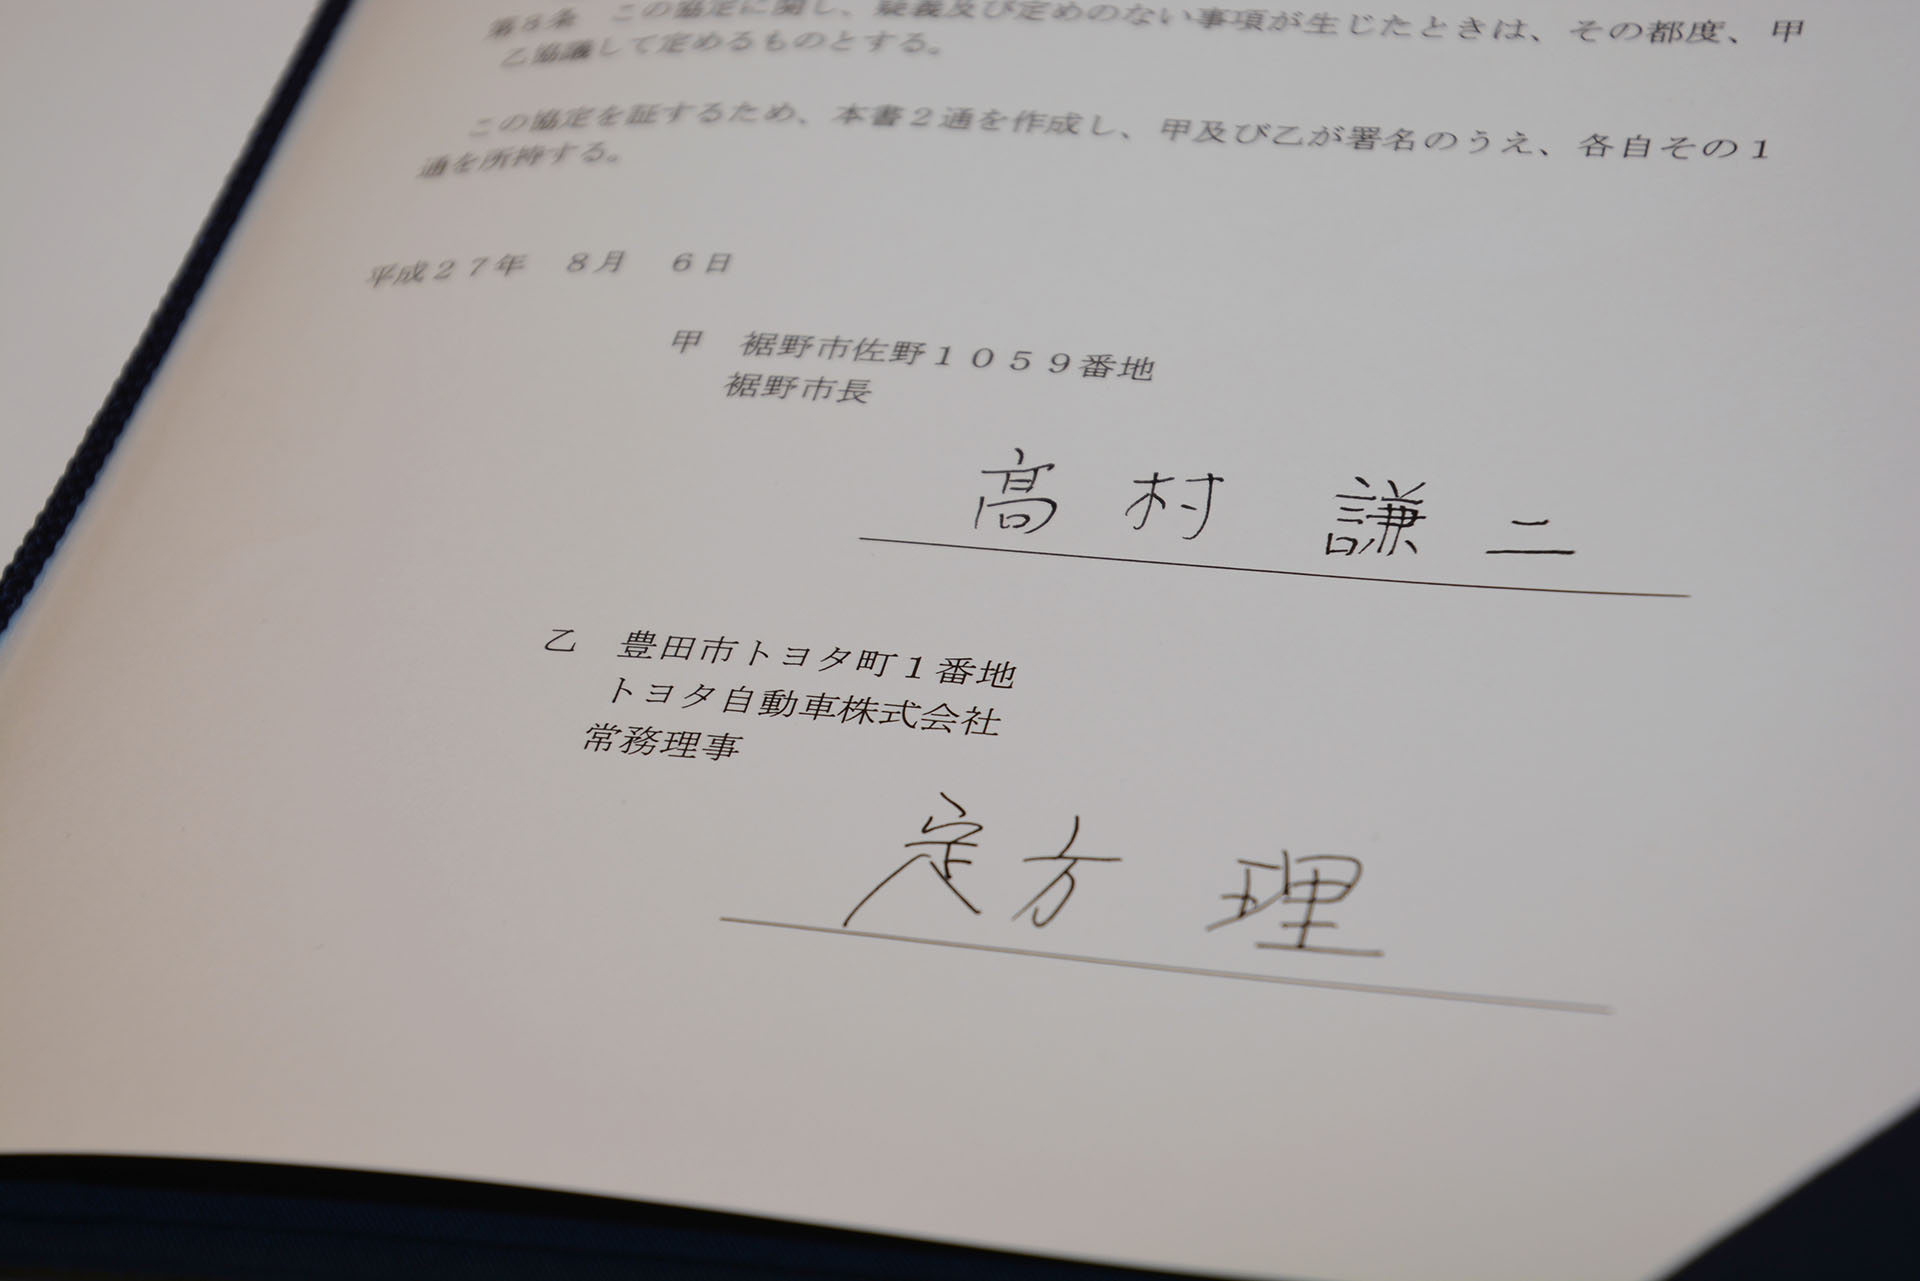 第8条　この協定に関し、疑義及び定めのない事項が生じたときは、その都度、甲
乙協議して定めるものとする。
この協定を証するため、本書２通を作成し、甲及び乙が署名のうえ、各自その１
通を所持する。
平成２７年　８月　６日
甲　裾野市佐野１０５９番地
裾野市長
髙村　謙二
乙　豊田市トヨタ町１番地
トヨタ自動車株式会社
常務理事
定方　理